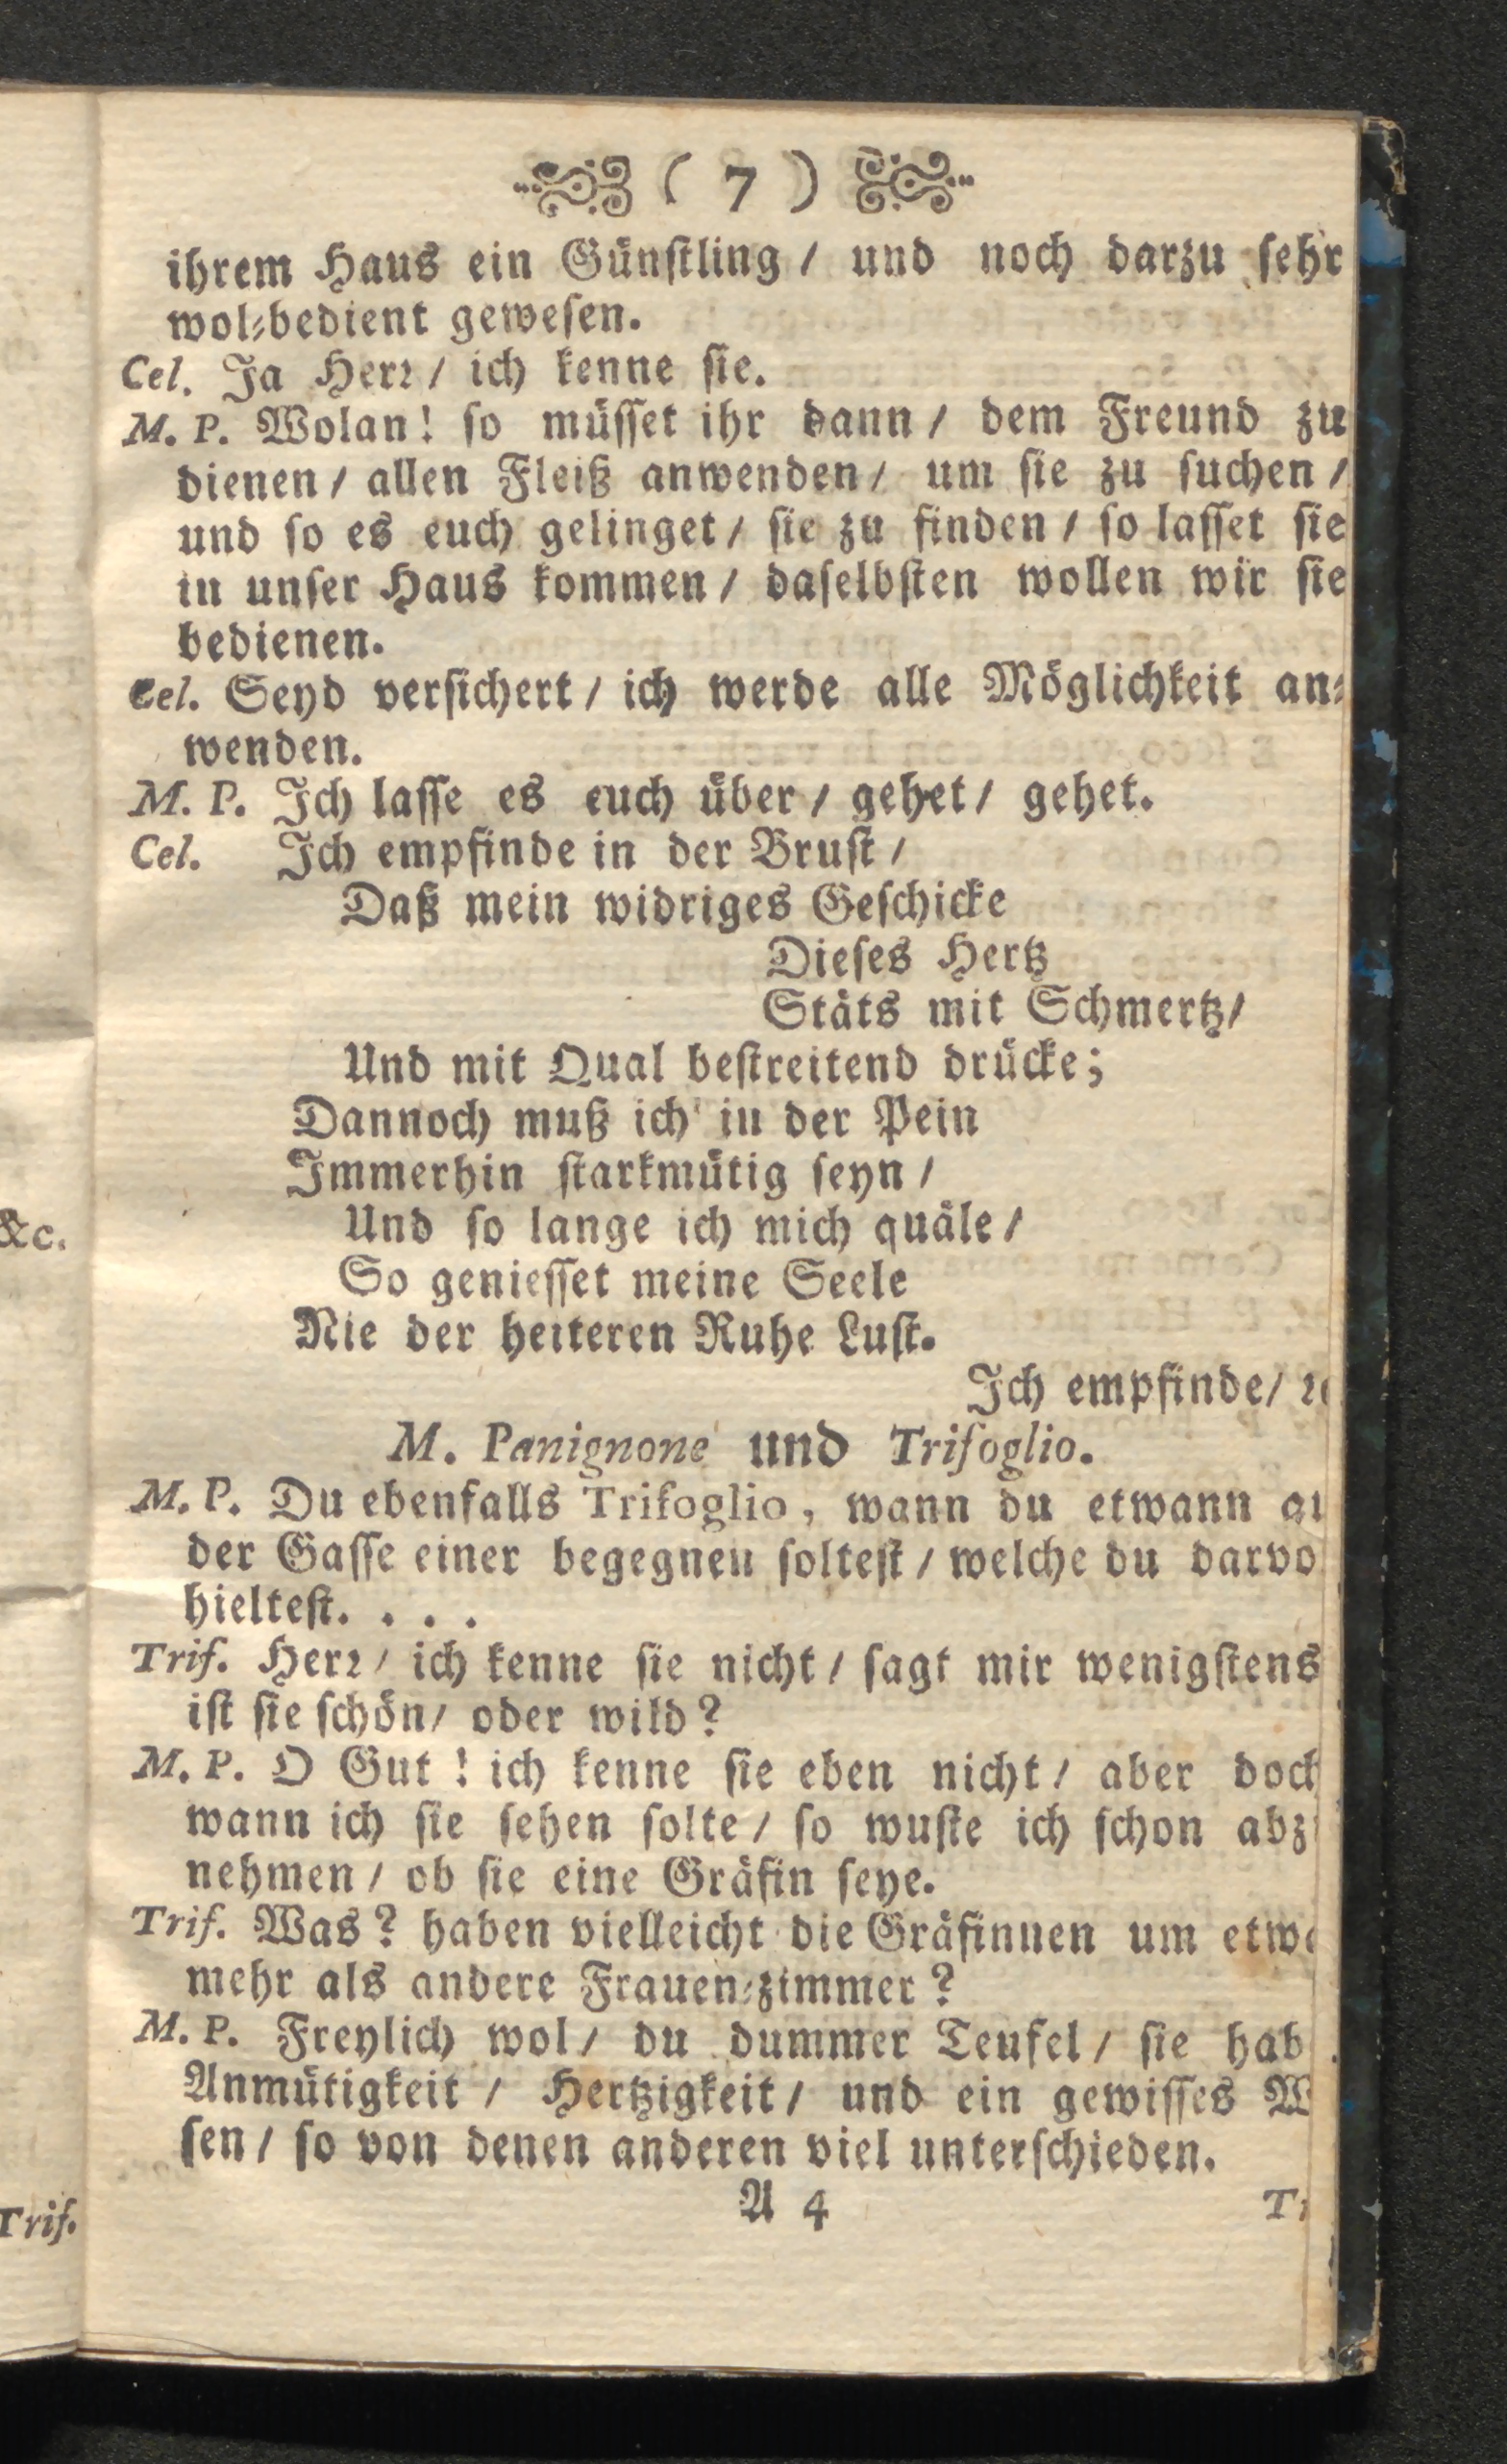 ( 7 )
ihrem Haus ein Günſtling / und noch darzu ſehr
wol⸗bedient geweſen.
Cel. Ja Herꝛ / ich kenne ſie.
M. P. Wolan! ſo müſſet ihr dann / dem Freund zu
dienen / allen Fleiß anwenden / um ſie zu ſuchen /
und ſo es euch gelinget / ſie zu finden / ſo laſſet ſie
in unſer Haus kommen / daſelbſten wollen wir ſie
bedienen.
Cel. Seyd verſichert / ich werde alle Möglichkeit an⸗
wenden.
M. P. Ich laſſe es euch über / gehet / gehet.
Cel. Ich empfinde in der Bruſt /
Daß mein widriges Geſchicke
Dieſes Hertz
Stäts mit Schmertz /
Und mit Qual beſtreitend drücke;
Dannoch muß ich in der Pein
Immerhin ſtarkmütig ſeyn /
Und ſo lange ich mich quäle /
&c.
So genieſſet meine Seele
Nie der heiteren Ruhe Luſt.
Ich empfinde /
M. Panignone und Trifoglio.
M. P. Du ebenfalls Trifoglio, wann du etwann
der Gaſſe einer begegnen ſolteſt / welche du darvo
hielteſt. . . .
Trif. Herꝛ / ich kenne ſie nicht / ſagt mir wenigſtens
iſt ſie ſchön / oder wild?
M. P. O Gut ! ich kenne ſie eben nicht / aber doch
wann ich ſie ſehen ſolte / ſo wuſte ich ſchon abz
nehmen / ob ſie eine Gräfin ſeye.
Trif. Was? haben vielleicht die Gräfinnen um etwa
mehr als andere Frauen⸗zimmer?
M. P. Freylich wol / du dummer Teufel / ſie hab
Anmütigkeit / Hertzigkeit / und ein gewiſſes W
ſen / ſo von denen anderen viel unterſchieden.
A 4
Trif.